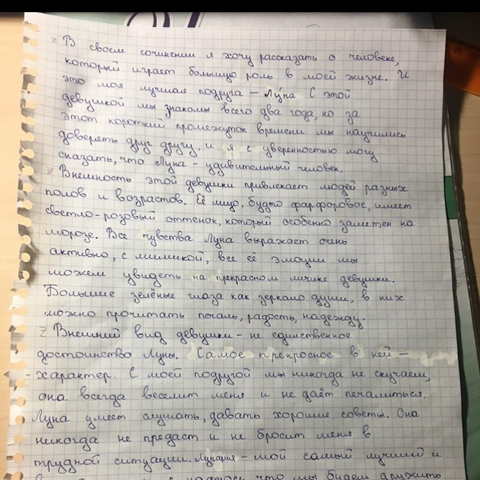 Z В своем сочинении я хочу рассказать о человеке,
который играет большую роль в моей жизне. И
это моя лучшая подруга – Луна С этой
девушкой мы знакомы всего два года, но за
этот короткий промежуток времени мы научились
доверять друг другу. и я с уверенностью могу
сказать, что Луна - удивительный человек.
Z Внешность этой девушки привлекает людей разных
полов и возрастов. Её лицо, будто фарфоровое, имеет
светло-розовый оттенок, который особенно заметен на
морозе. Все чувства Луна выражает очень
активно, с мимикой, все её эмоции мы
можем увидеть на прекрасном личике девушки.
Большие зелёные глаза как зеркало души, в них
можно прочитать печаль, радость, надежду.
Z Внешний вид девушки - не единственное
достоинство Луны. Самое прекрасное в ней –
характер. С моей подругой мы никогда не скучаем,
она всегда веселит меня и не даёт печалиться.
Луна умеет слушать, давать хорошие советы. Она
никогда не предаст и не бросит меня в
трудной ситуации. – мой самый лучший и
что мы будем дружить